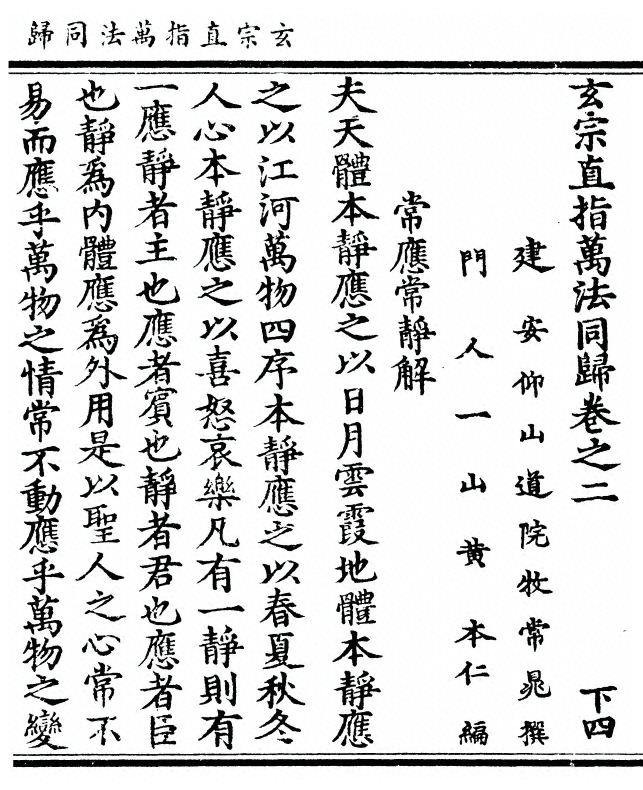 玄宗直指萬法同歸
玄宗直指萬法同歸卷之二
下四
建安仰山道院牧常晁撰
門人一山黄本仁編
常應常靜解
夫天體本靜應之以日月雲霞地體本靜應
之以江河萬物四序本靜應之以春夏秋冬
人心本靜應之以喜怒哀樂凡有一靜則有
一應靜者主也應者賓也靜者君也應者臣
也靜爲内體應爲外用是以聖人之心常不
易而應乎萬物之情常不動應乎萬物之變